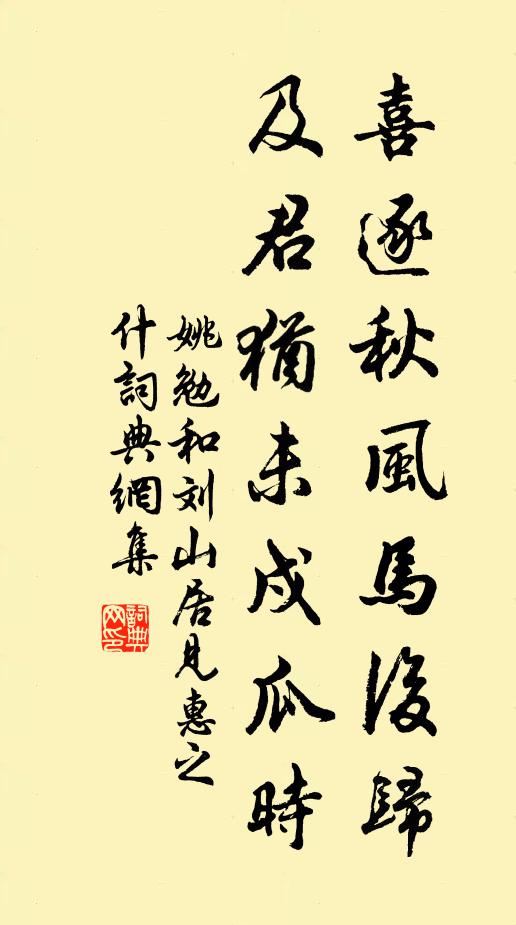 喜逐秋風馬後歸
及君猶未戍瓜時
姚勉和刘山居見惠之
什詞典網集
詞典
网印